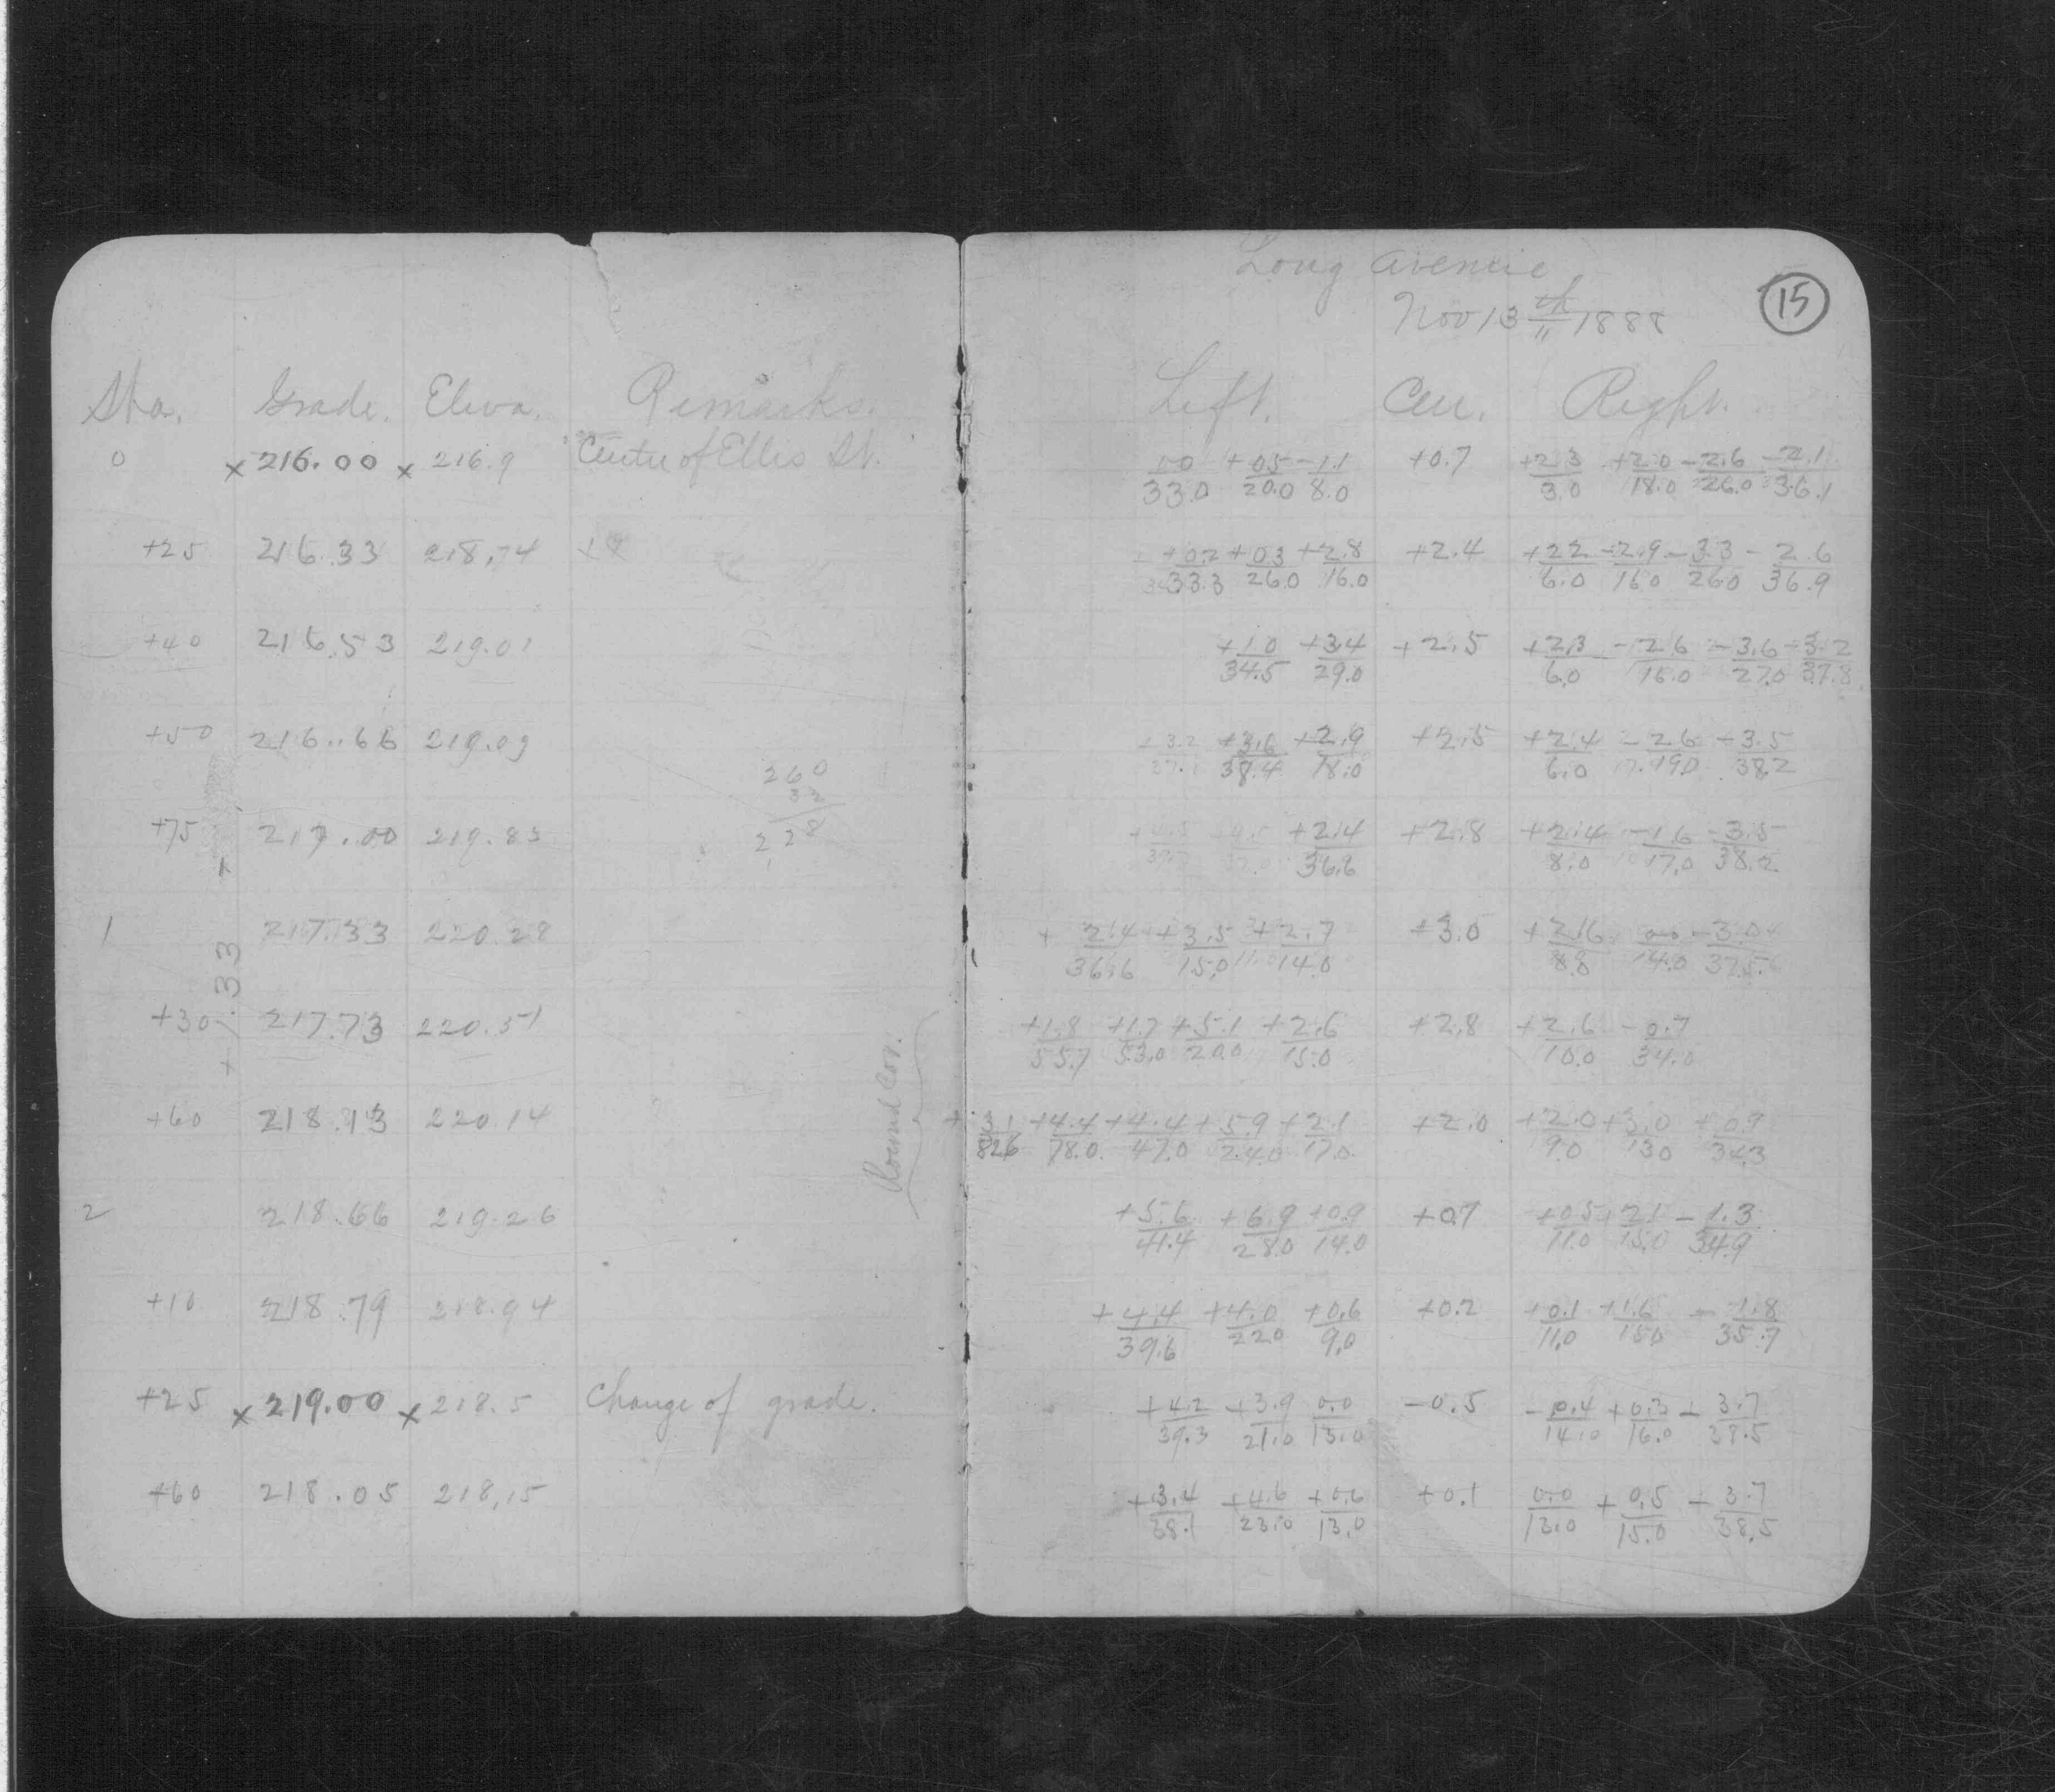 Long Avenue
Nov 13th 1888
15
Sta. Grade. Eleva. Remarks. Left. Cen. Right.
0 x 216.00 x 216.9 Center of Ellis St. 0.0/33.0 +0.5/20.0 -1.1/8.0 +0.7 +2.3/3.0 +2.0/18.0 -2.6/26.0 -2.1/36.1
+25 216.33 218.74 +0.2/33.3 +0.3/26.0 +2.8/16.0 +2.4 +2.2/6.0 -2.9/16.0 -3.3/26.0 -2.6/36.9
+40 216.53 219.01 +1.0/34.5 +3.4/29.0 +2.5 +2.3/6.0 -2.6/16.0 -3.6/27.0 -3.2/37.8
+50 216.66 219.09 +3.6/38.4 +2.9/18.0 +2.5 +2.4/6.0 -2.6/19.0 -3.5/38.2
260
32
228
+75 217.00 219.83 +2.4/36.6 +2.8 +2.4/8.0 -1.6/17.0 -3.5/38.2
1 217.33 220.28 +2.4/36.6 +3.5/15.0 +2.7/14.0 +3.0 +2.6/8.8 0.0/14.0 -3.0/37.5
+1.33
+30 217.73 220.51 +1.8/55.7 +1.7/53.0 +5.1/20.0 +2.6/15.0 +2.8 +2.6/10.0 -0.7/34.0
Round Cor.
+60 218.13 220.14 +3.1/82.6 +4.4/78.0 +4.4/47.0 +5.9/24.0 +2.1/17.0 +2.0 +2.0/9.0 +3.0/13.0 +0.9/34.3
2 218.66 219.26 +5.6/41.4 +6.9/28.0 +0.9/14.0 +0.7 +0.5/11.0 +2.1/15.0 -1.3/34.9
+10 218.79 218.94 +4.4/39.6 +4.0/22.0 +0.6/9.0 +0.2 +0.1/11.0 +1.6/15.0 -1.8/35.7
+25 x 219.00 x 218.5 Change of grade. +4.2/39.3 +3.9/21.0 0.0/13.0 -0.5 -0.4/14.0 +0.3/16.0 - 3.7/38.5
+60 218.05 218.15 +3.4/38.1 +4.6/23.0 +0.6/13.0 +0.1 0.0/13.0 +0.5/15.0 - 3.7/38.5